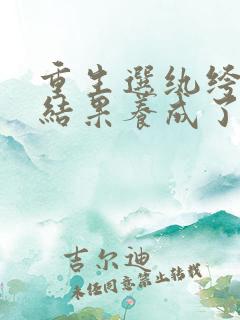 重生選紈绔
結果養成了
吉尔迪
未经同意禁止转载